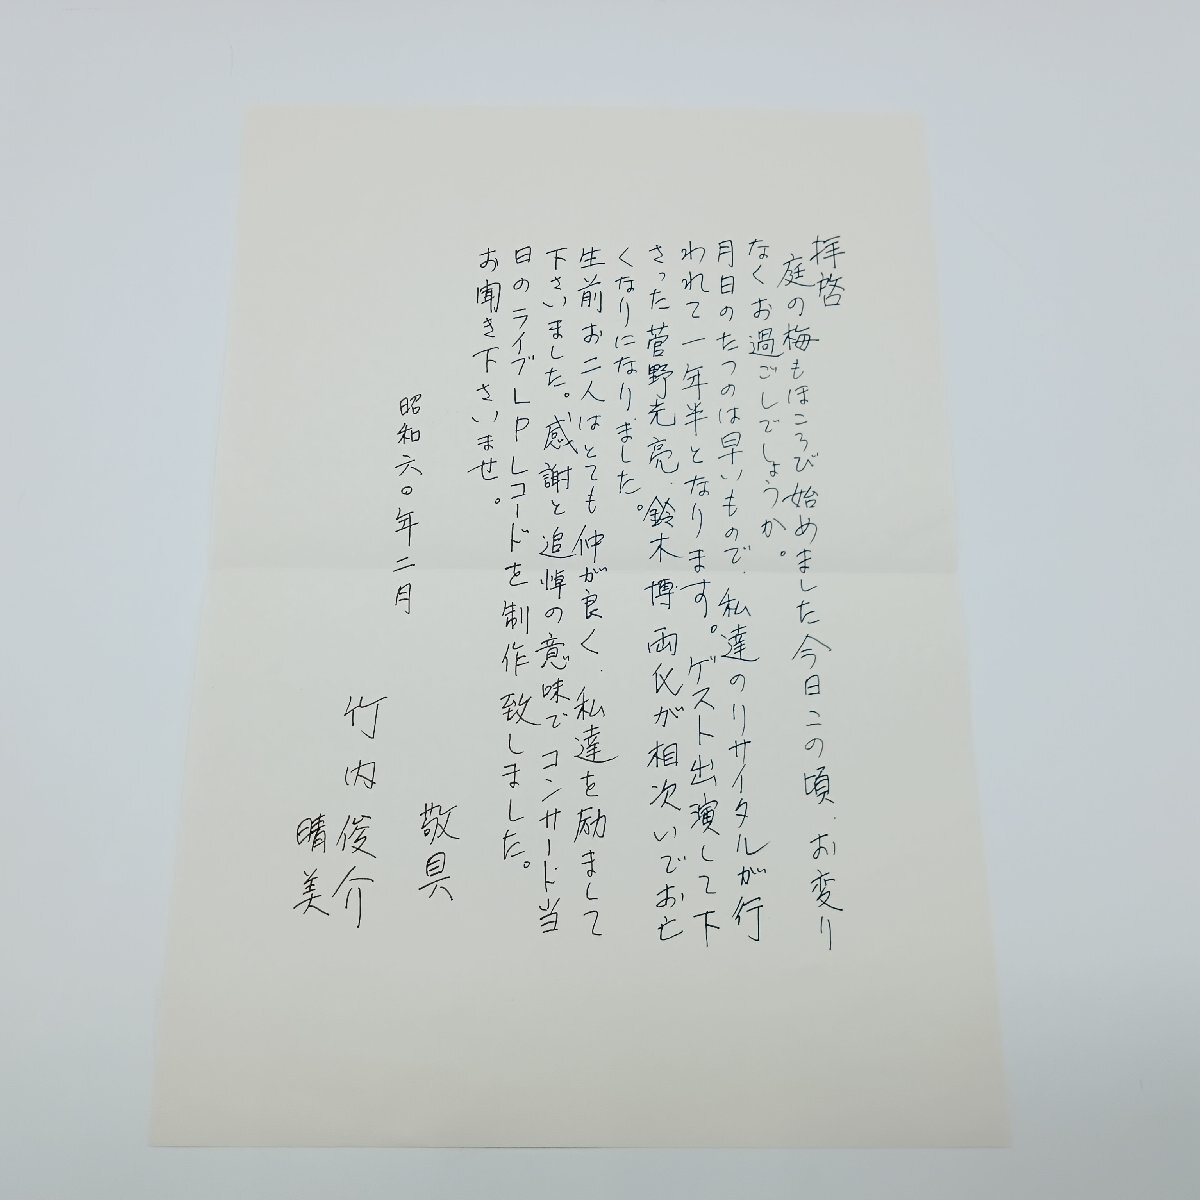 拝啓
庭の梅もほころび始めました今日この頃、お変り
なくお過ごしでしょうか。
月日のたつのは早いもので、私達のリサイタルが行
われて一年半となります。ゲスト出演して下
さった菅野光亮、鈴木博両氏が相次いでお亡
くなりになりました。
生前お二人はとても仲が良く、私達を励まして
下さいました。感謝と追悼の意味でコンサート当
日のライブLPレコードを制作致しました。
お聞き下さいませ。
敬具
昭和六〇年二月
竹内俊介
晴美